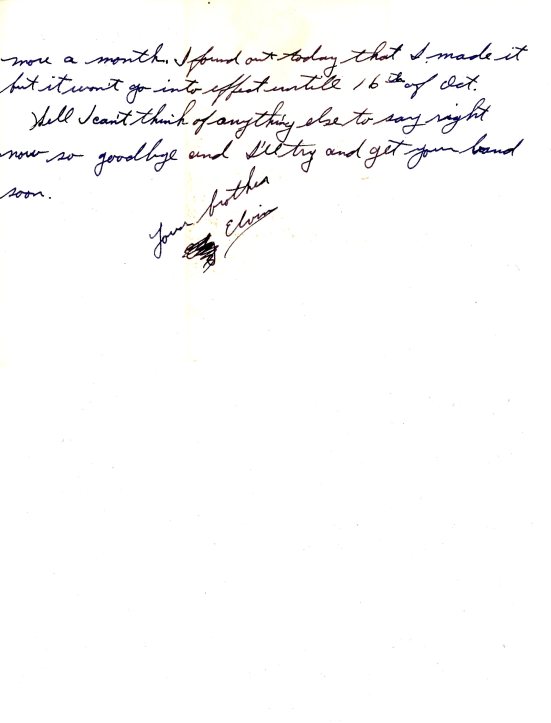 more a month. I found out today that I made it
but it wont go into effect untill 16th of Oct.
Well I cant think of anything else to say right
now so goodbye and I'll try and get your band
soon.
Your brother
Elvin